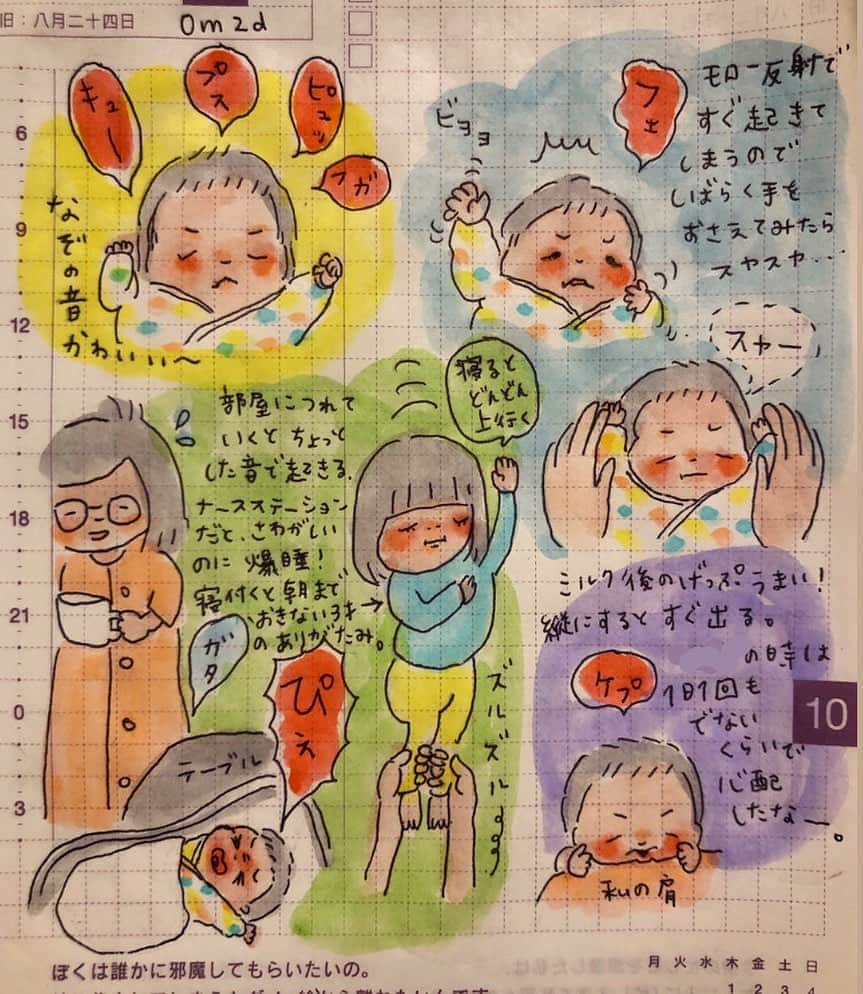 日：八月二十四日
0m2d
キュー
プス
ピュッ
フガ
なぞの音
かわいい〜
ビヨヨ
フェ
モロー反射で
すぐ起きて
しまうので
しばらく手を
おさえてみたら
スヤスヤ...
スヤー
部屋につれて
いくとちょっと
した音で起きる.
ナースステーション
だと、さわがしい
のに爆睡!
寝付くと朝まで
おきない3才→
のありがたみ。
寝ると
どんどん
上行く
ズルズル
ガタ
ぴぇ
テーブル
ミルク後のげっぷうまい!
縦にするとすぐ出る。
の時は
1日1回も
でない
くらいで
心配
したなー。
ケプ
私の肩
6
9
12
15
18
21
0
3
10
ぼくは誰かに邪魔してもらいたいの。
月 火 水 木 金 土 日
1 2 3 4